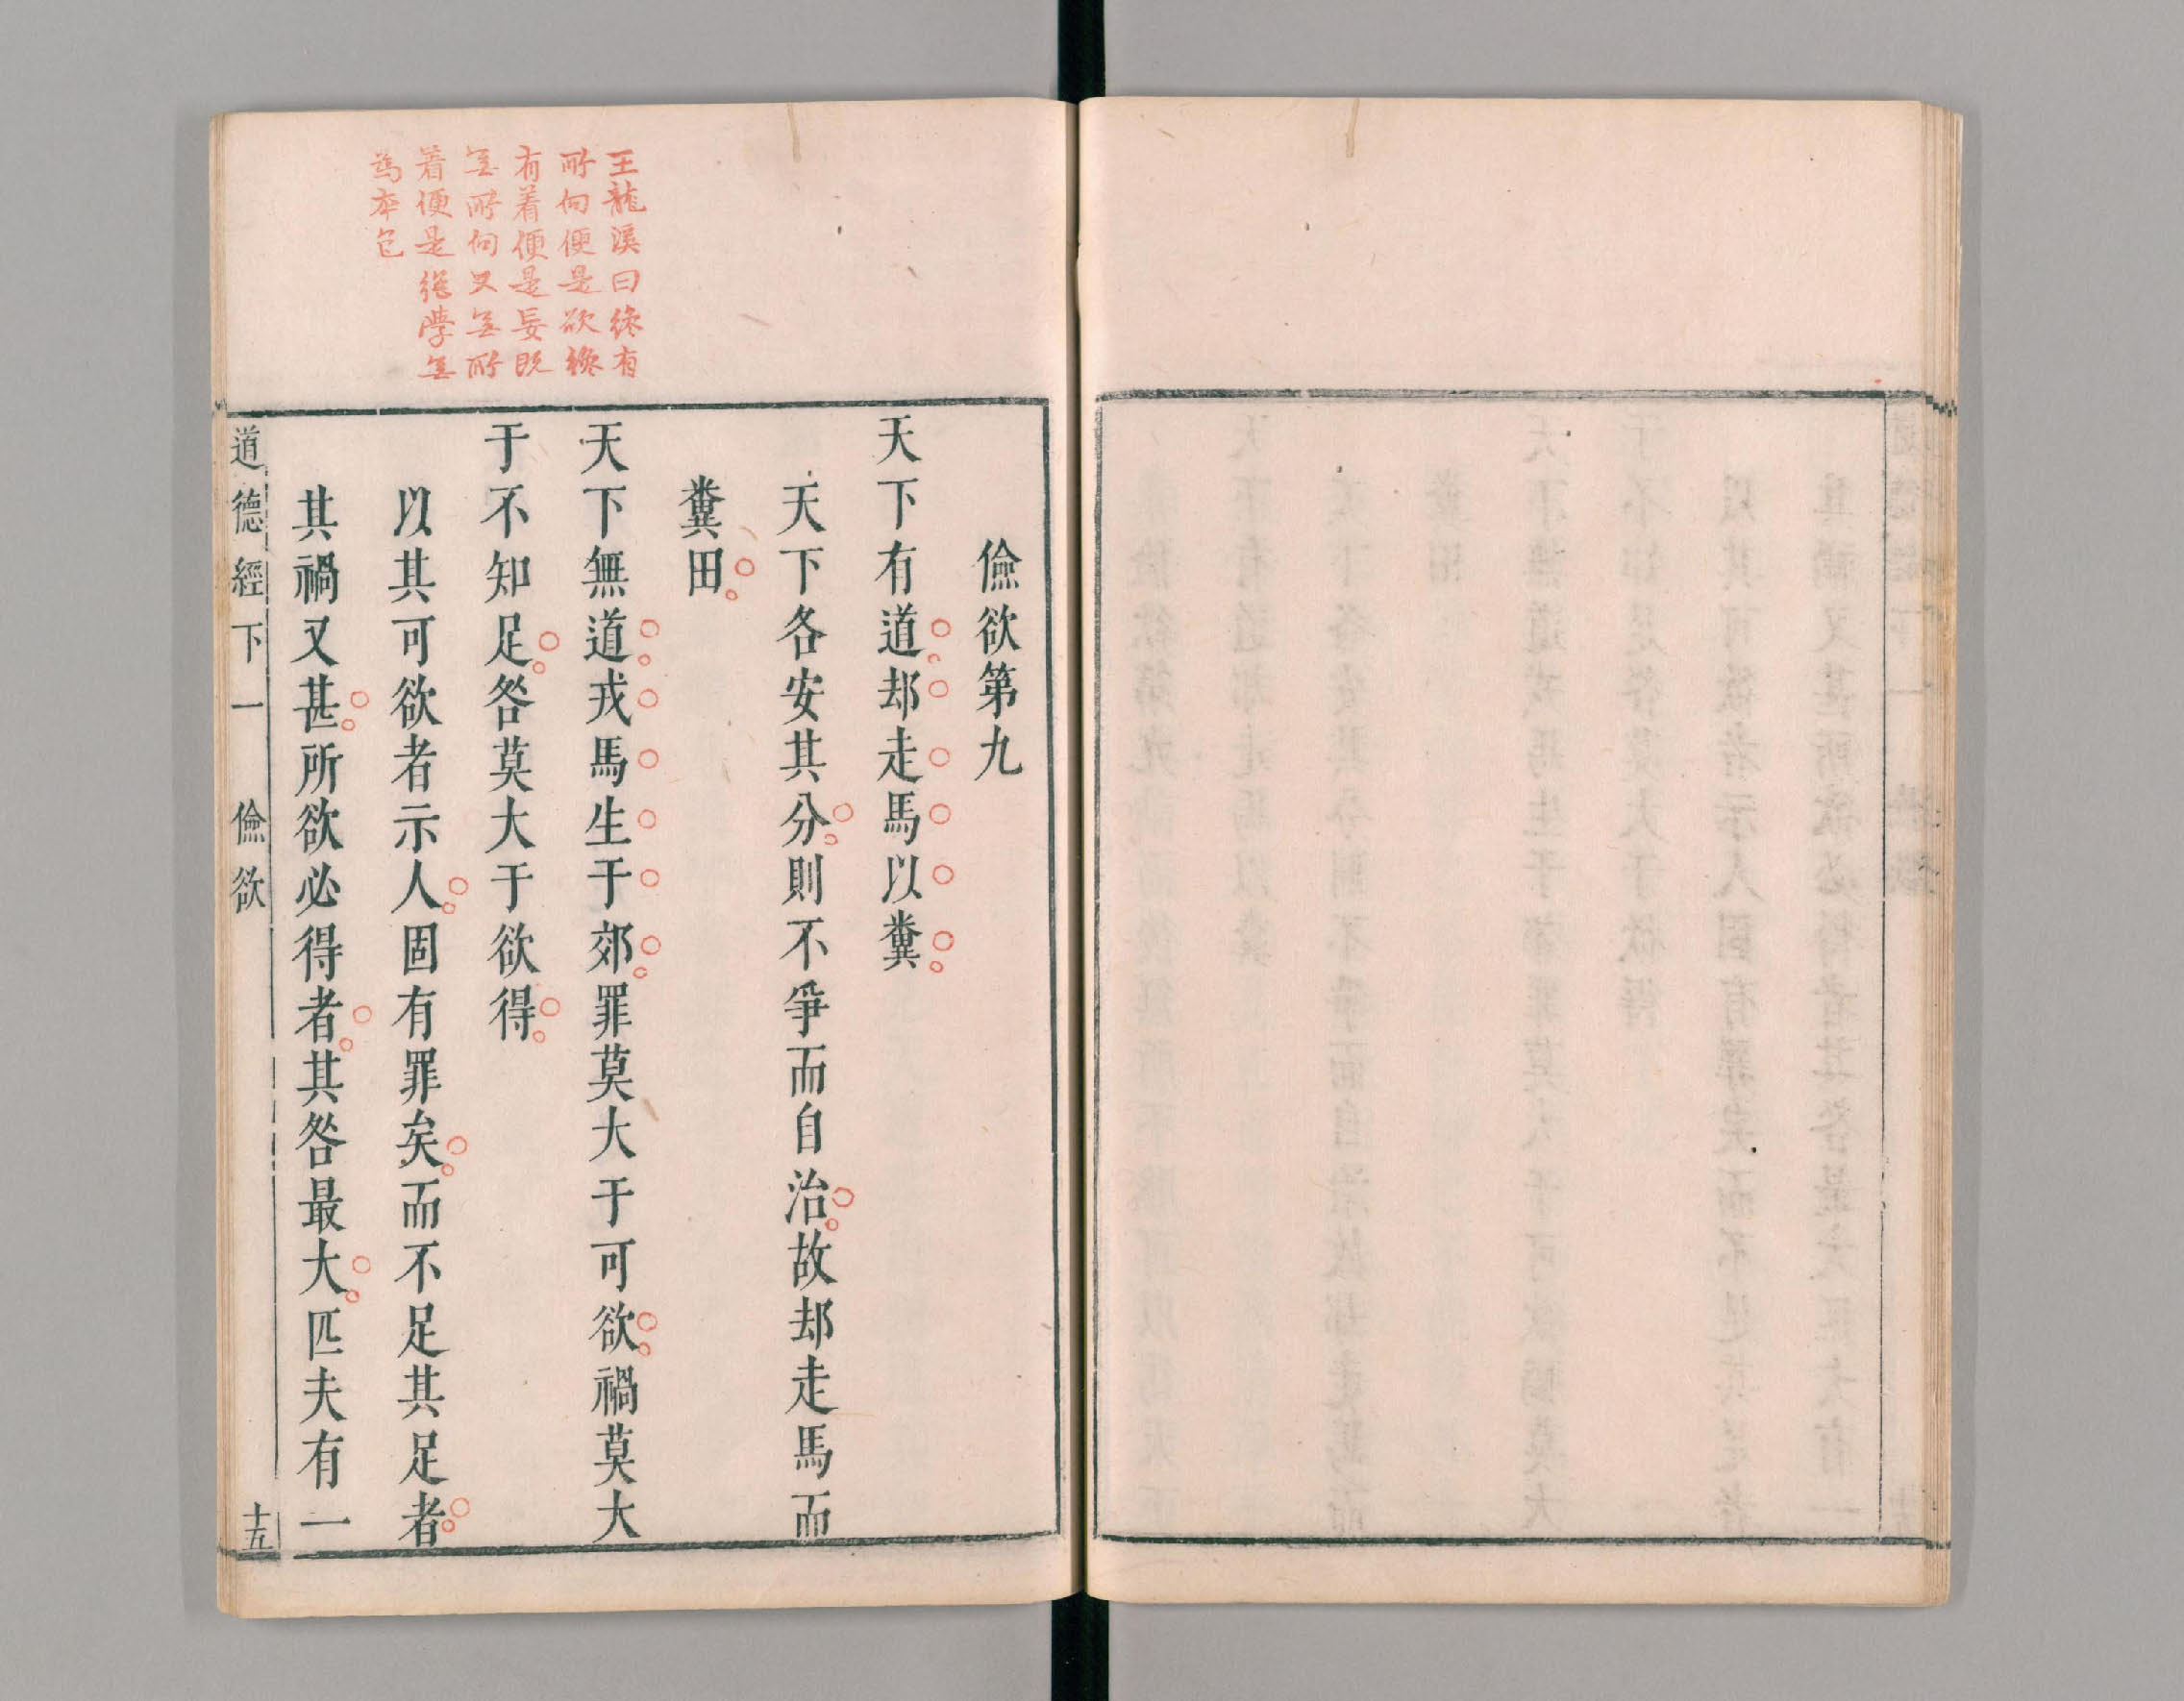 王龍溪曰纔有
所向便是欲纔
有着便是妄既
無所向又無所
着便是絕學無
為本色
儉欲第九
天下有道却走馬以糞
天下各安其分則不爭而自治故却走馬而
糞田
天下無道戎馬生于郊罪莫大于可欲禍莫大
于不知足咎莫大于欲得
以其可欲者示人固有罪矣而不足其足者
其禍又甚所欲必得者其咎最大匹夫有一
道德經下一 儉欲 十五